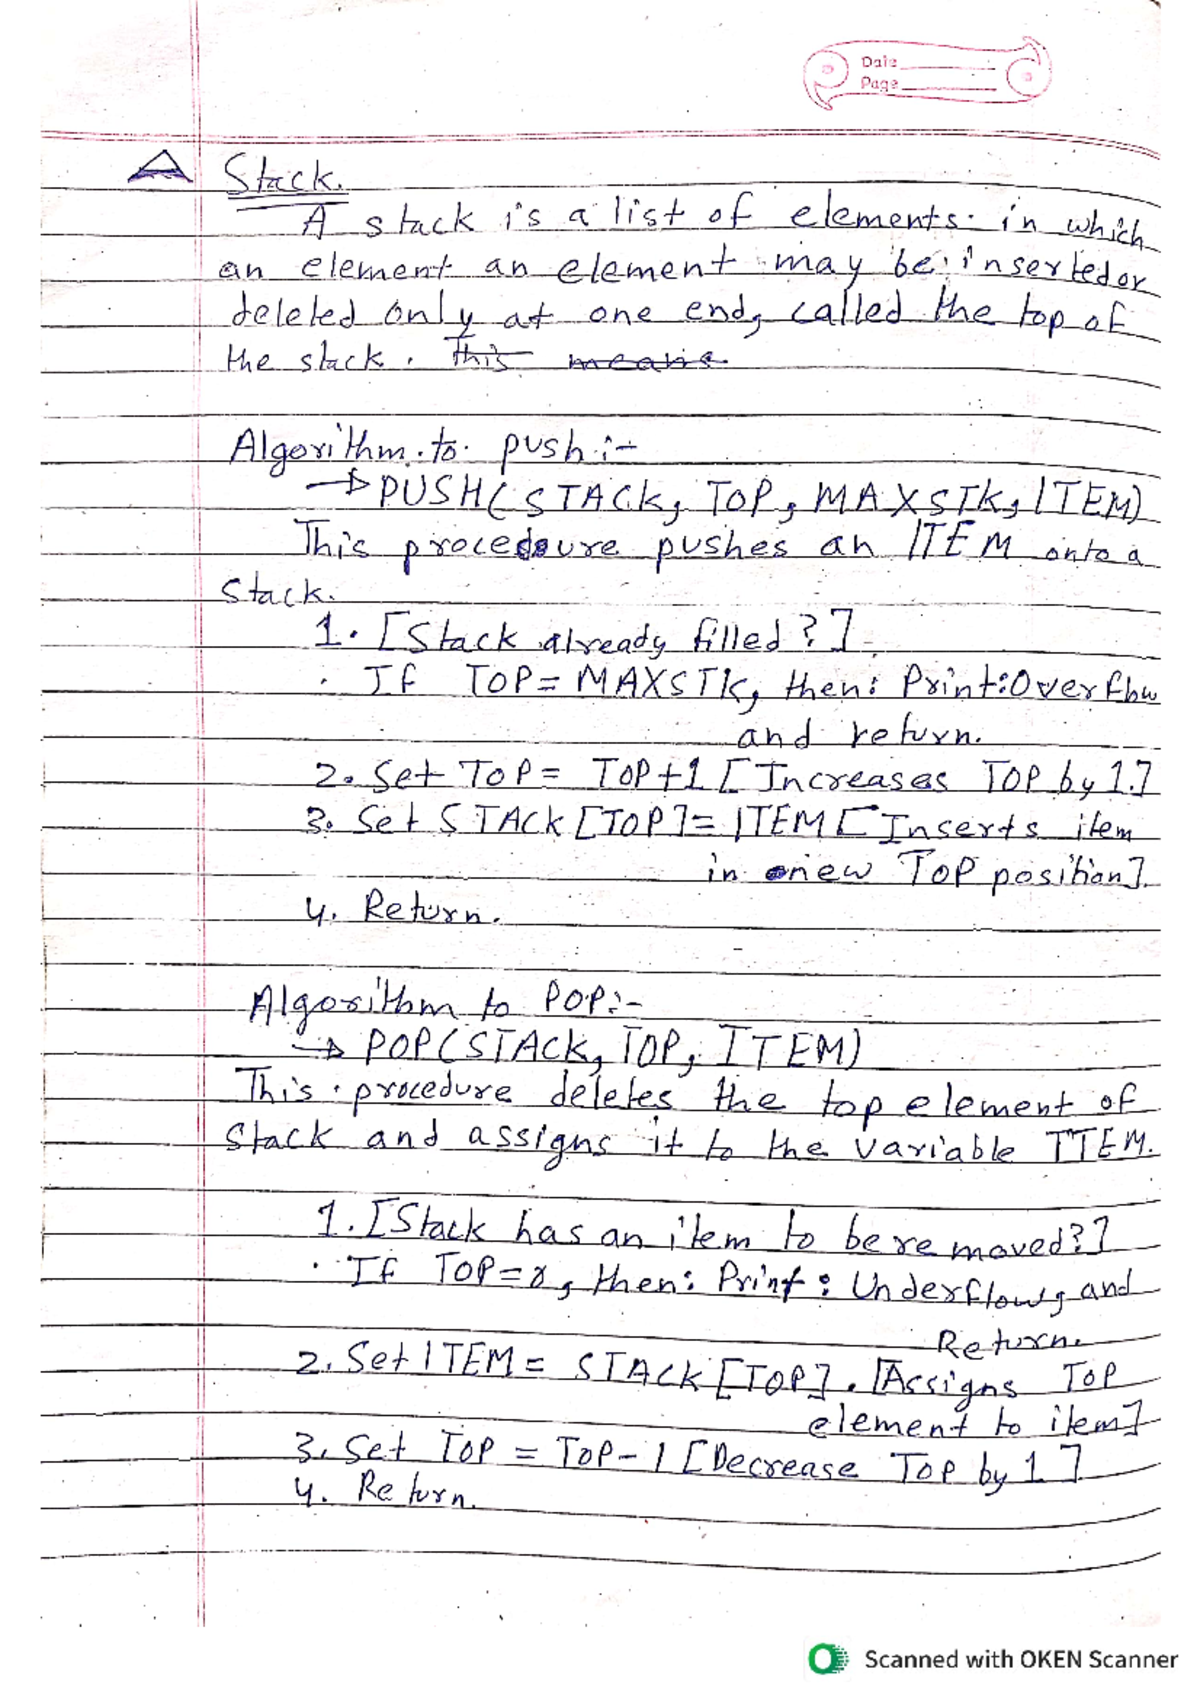 Date
Page
A Stack.
A stack is a list of elements in which
an element an element may be inserted or
deleted only at one end, called the top of
the stack. This means
Algorithm to push :-
→ PUSH(STACK, TOP, MAXSTK, ITEM)
This procedure pushes an ITEM onto a
Stack.
1. [Stack already filled?]
If TOP = MAXSTK, then: Print: Overflow
and return.
2. Set TOP = TOP+1 [Increases TOP by 1.]
3. Set STACK[TOP] = ITEM [Inserts item
in new TOP position].
4. Return.
Algorithm to POP:-
→ POP(STACK, TOP, ITEM)
This procedure deletes the top element of
Stack and assigns it to the variable ITEM.
1. [Stack has an item to be removed?]
If TOP = , then: Print: Underflow, and
Return.
2. Set ITEM = STACK[TOP]. [Assigns TOP
element to item]
3. Set TOP = TOP-1 [Decrease Top by 1]
4. Return.
Scanned with OKEN Scanner